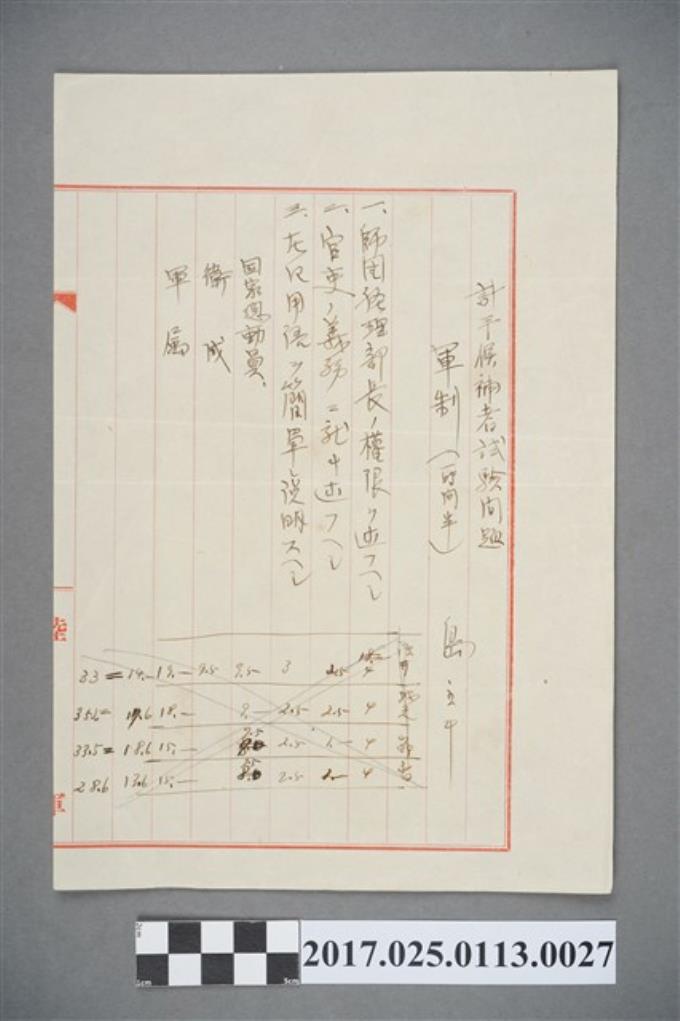 計手候補者試験問題
軍制（一時間半）
島主計
一、師団経理部長ノ權限ヲ述フヘシ
二、官吏ノ義務ニ就キ述フヘシ
三、左記用語ヲ簡單ニ説明スヘシ
国家総動員、
衛戍
軍属
33 = 14.- 19.- 9.5 9.5- 3
18.- 9.- 2.5 2.5- 4
33.5 = 18.6 15.- 2.5 4
28.6 13.6 15.- 2.5 2.- 4
陸
軍
2017.025.0113.0027
5cm